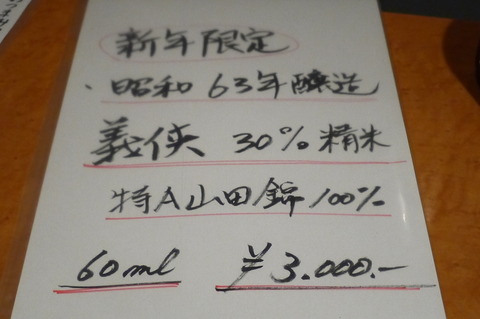 新年限定
・昭和63年醸造
義侠 30%精米
特A山田錦100%
60ml ¥3.000.-